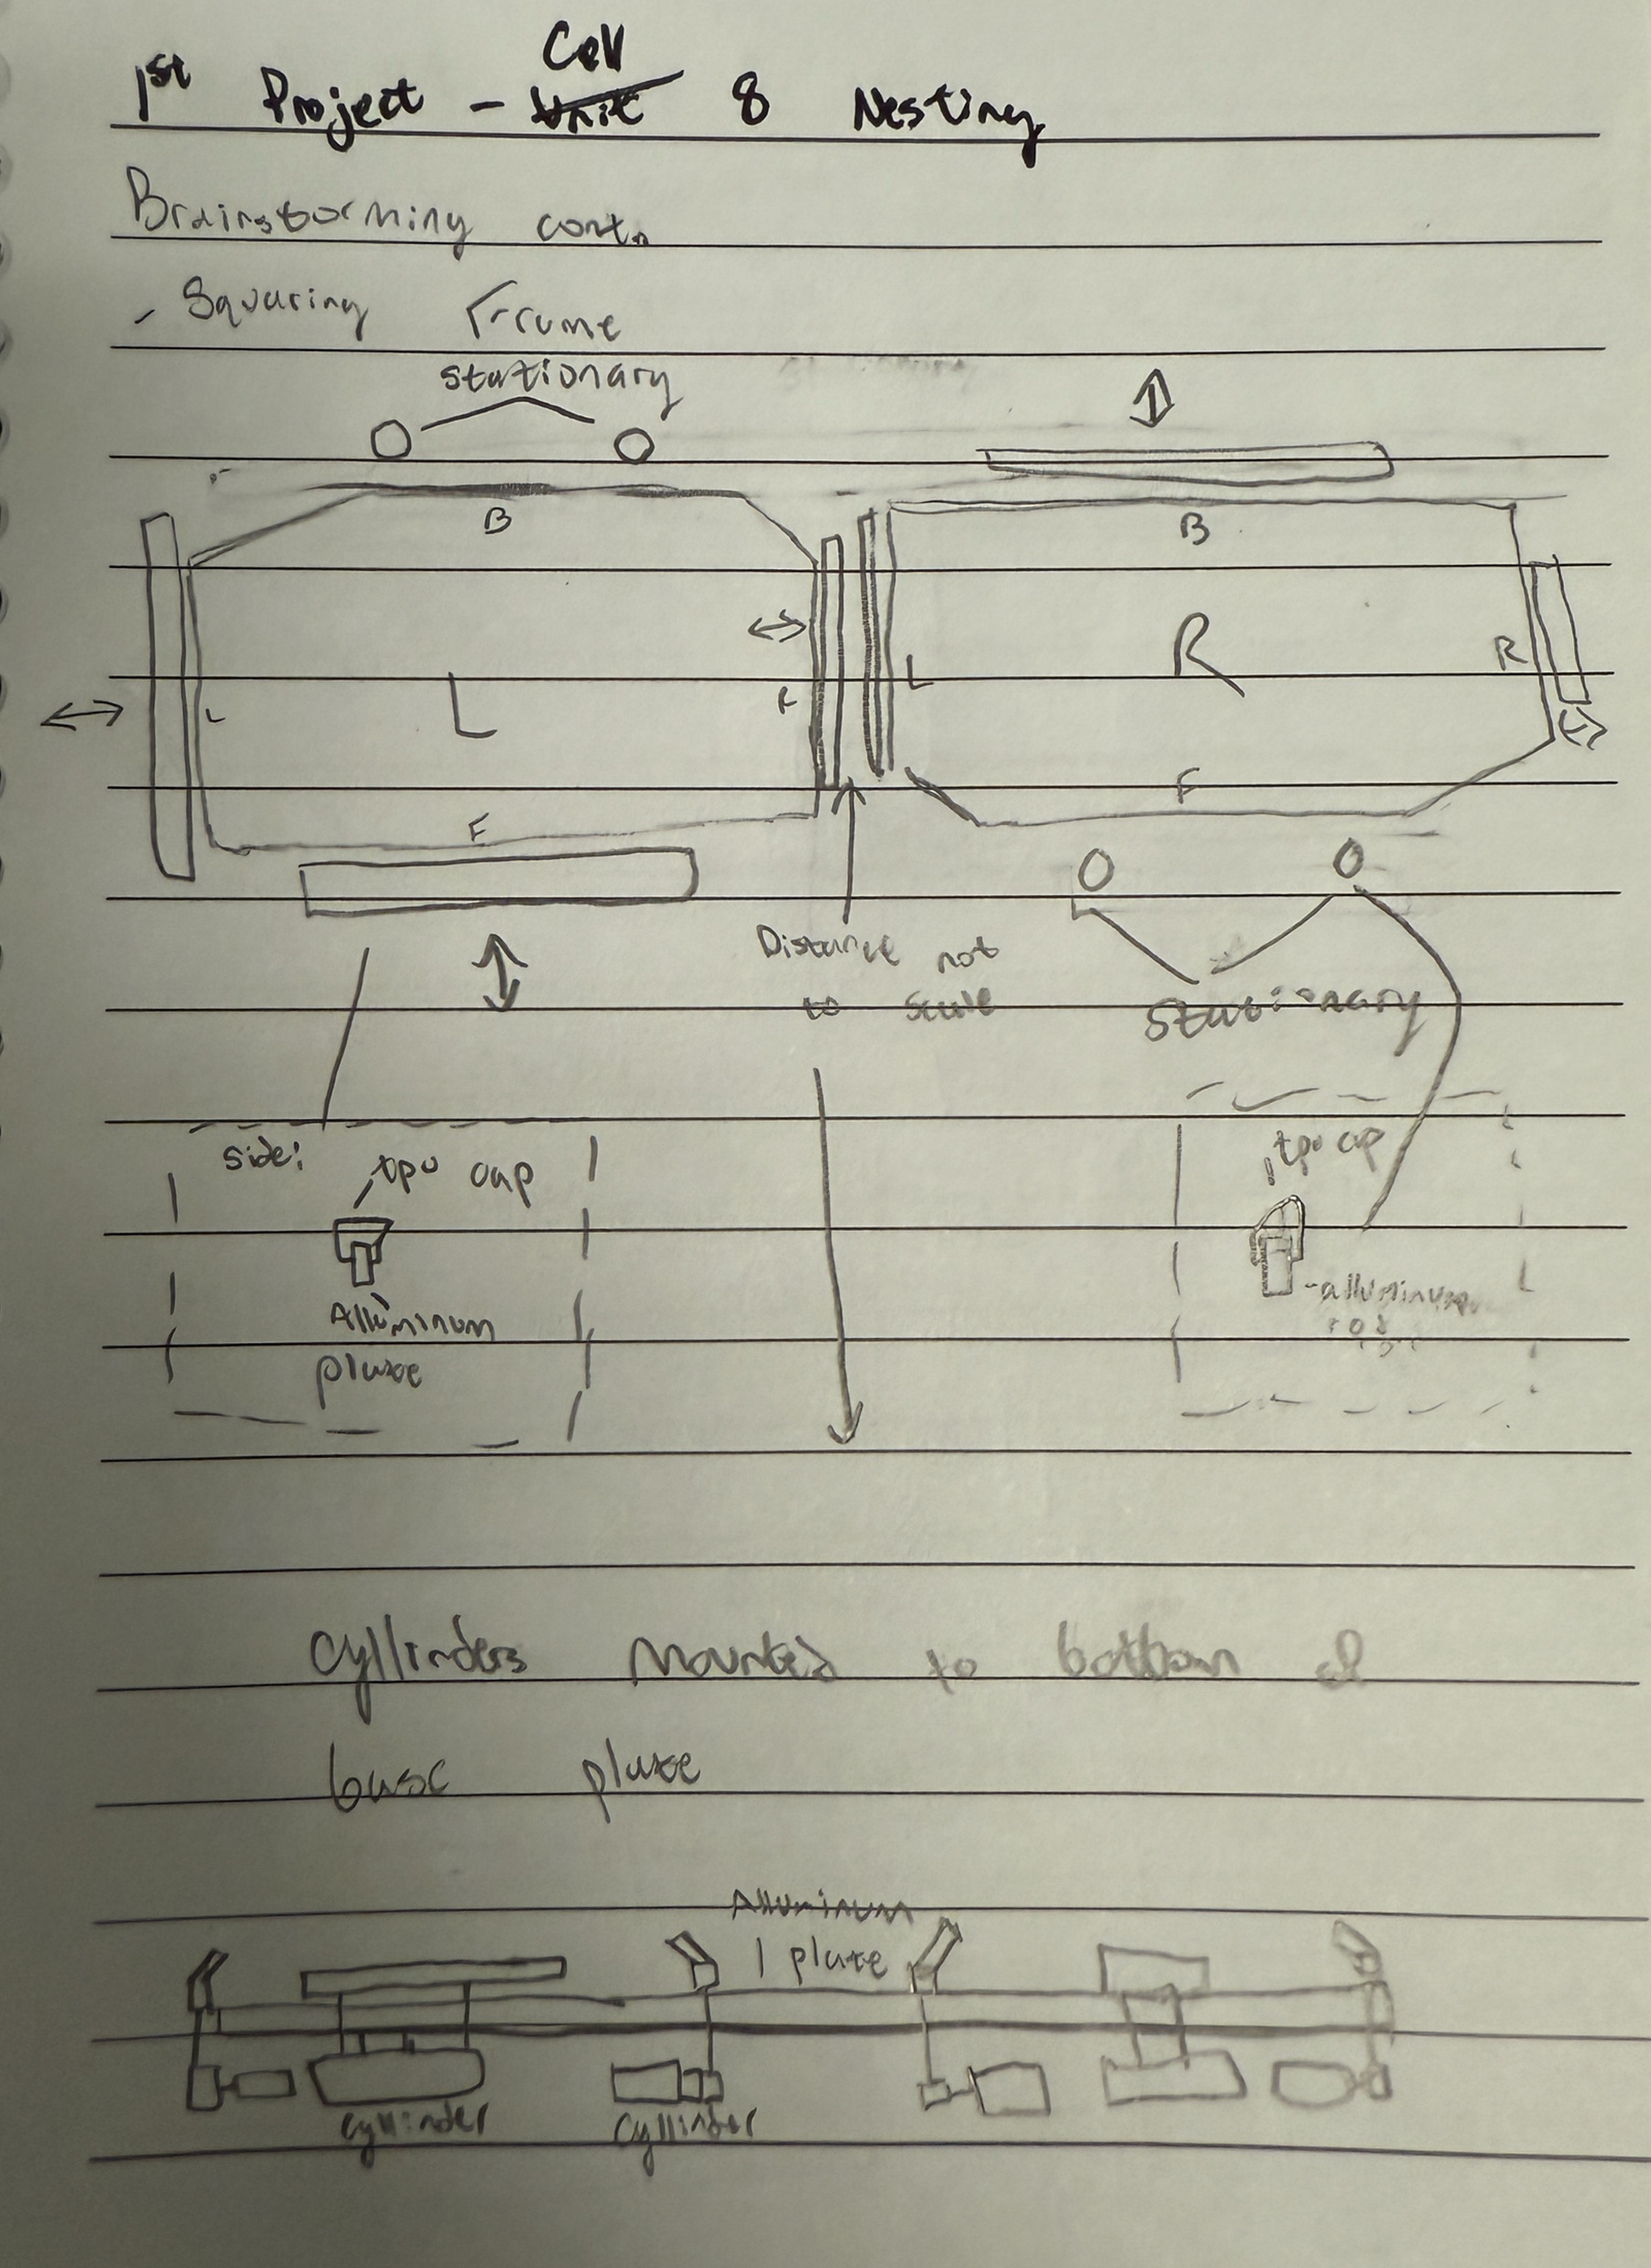 Cell
1st Project - Unit 8 Nesting
Brainstorming cont.
- Squaring Frame
stationary
B
B
R
L
R
L
L
F
F
Distance not
to scale
stationary
side:
tpu cap
tpu cap
Alluminum
plate
-alluminum
rod
Cyllinders mounted to bottom of
base plate
Alluminum
plate
cyllinder
cyllinder